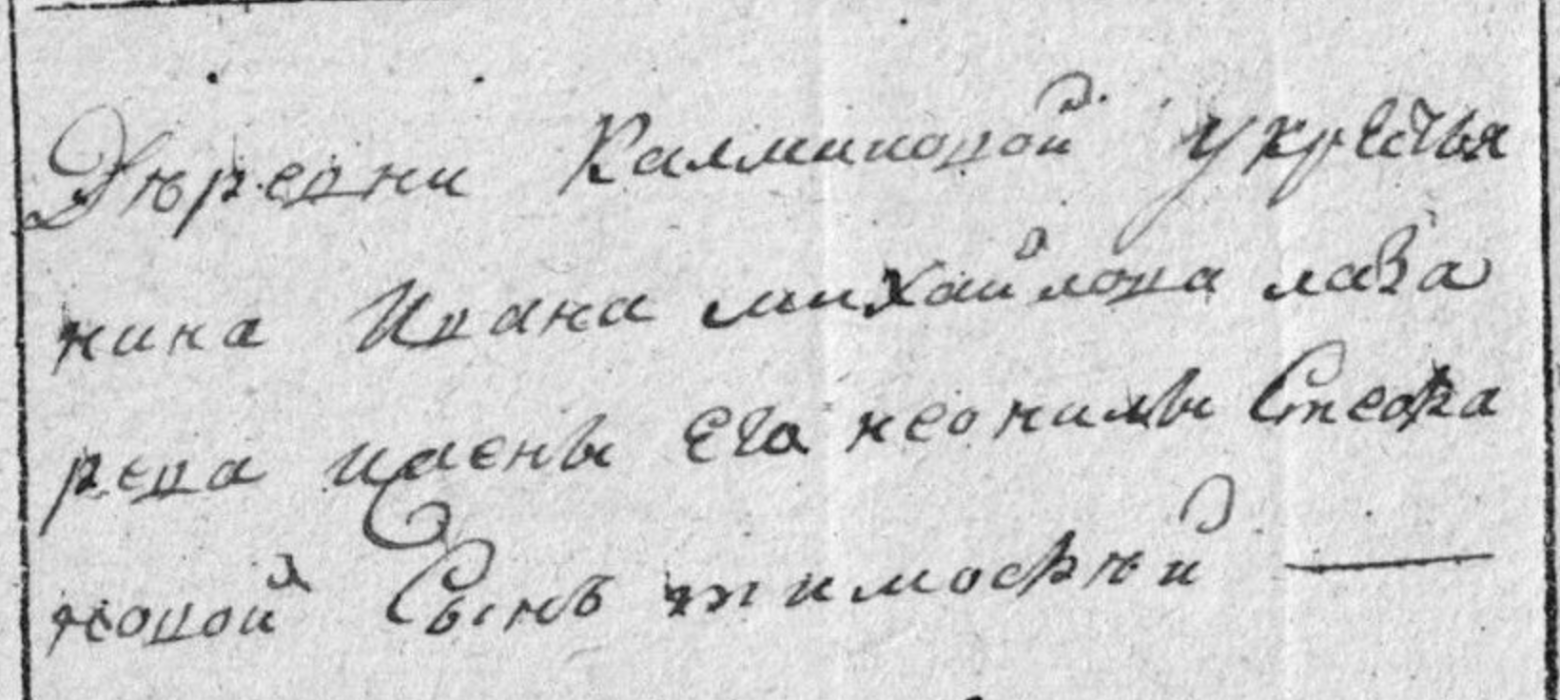 Дѣревни Калмыковой у крестья
нина Ивана михайлова лаза
рева ижены Его неонилы Стефа
новой Сынъ тимофѣй —